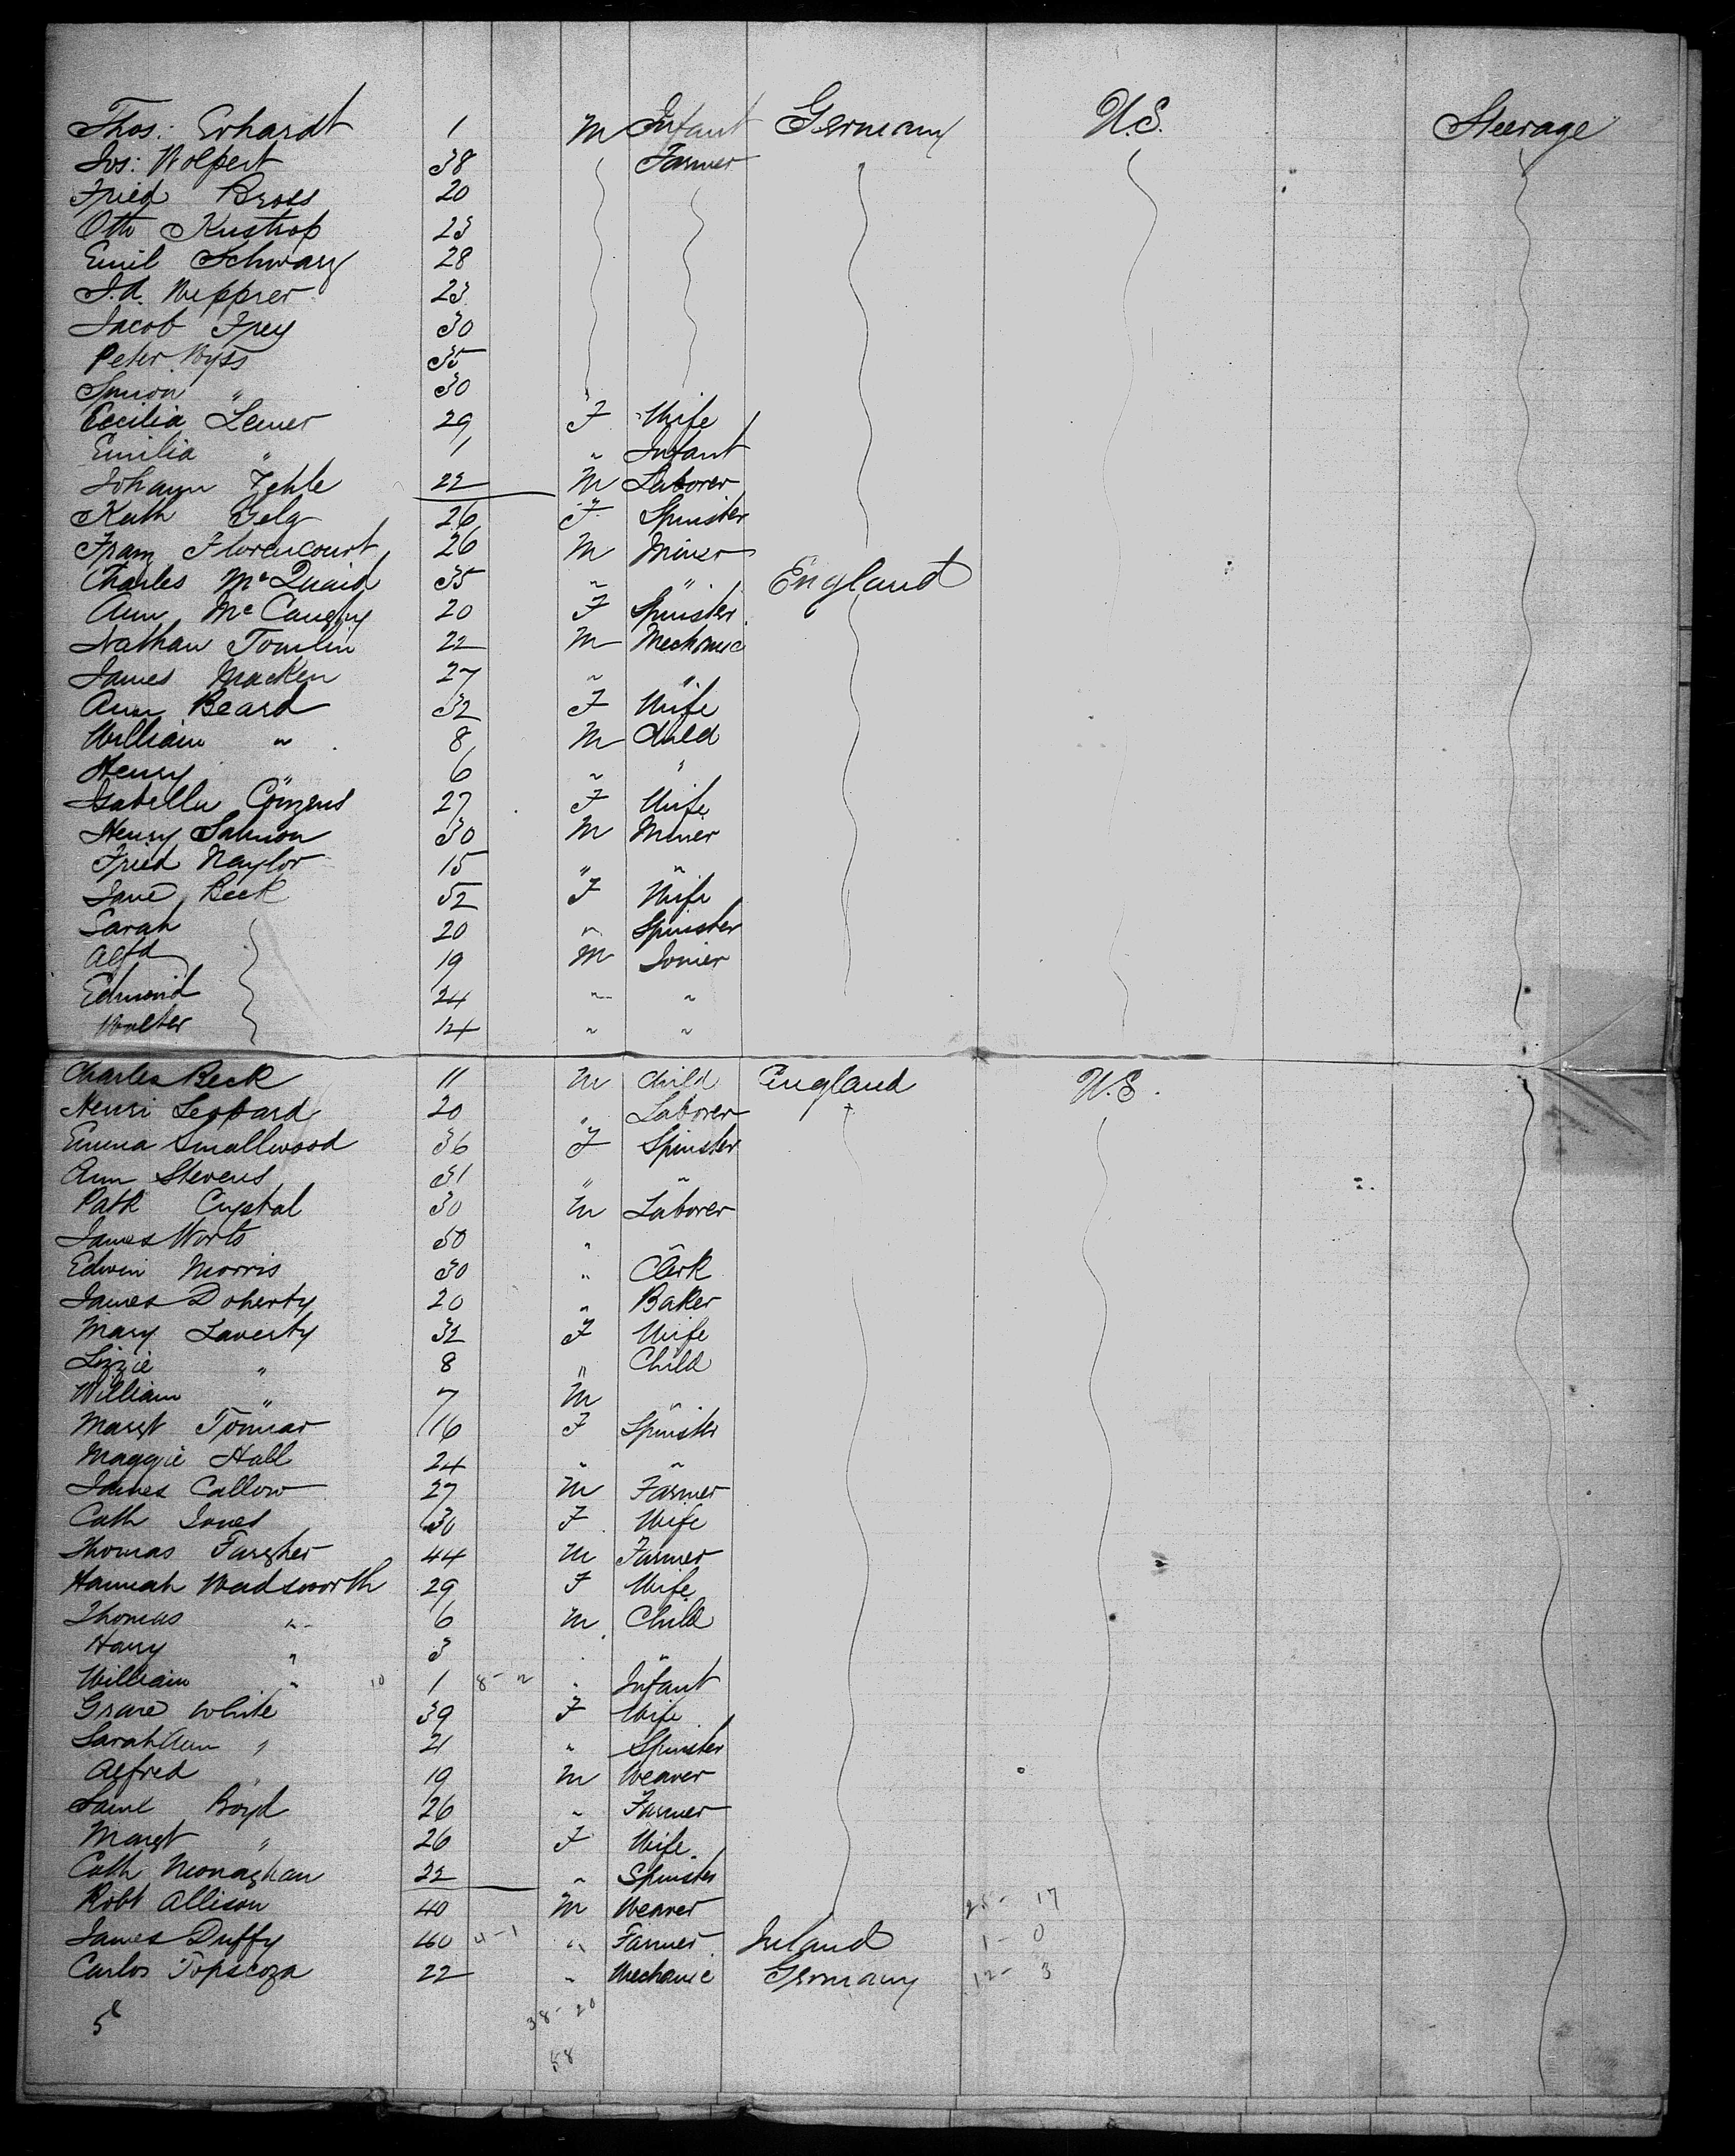 Thos: Erhardt 1 M Infant Germany U.S. Steerage
Jos: Wolpert 38 Farmer
Fried Bross 20
Otto Kustrop 23
Emil Schwarz 28
J.A. Wepprer 23
Jacob Frey 30
Peter Wyss 35
Simon " 30
Cecilia Lener 29 F Wife
Emilia " 1 " Infant
Johann Zehle 22 M Laborer
Kath Gelg 26 F Spinster
Franz Florencourt 26 M Miner
Charles McQuaid 35 " " England
Ann McCaughy 20 F Spinster
Nathan Tomlin 22 M Mechanic
James Macken 27 " "
Ann Beard 32 F Wife
William " 8 M Child
Henry " 6 " "
Isabella Couzens 27 F Wife
Henry Salmon 30 M Miner
Fried Naylor 15 " "
Jane Beck 52 F Wife
Sarah 20 " Spinster
Alfd 19 M Joiner
Edmond 24 " "
Walter 14 " "
Charles Beck 11 M Child England U.S.
Henri Leopard 20 " Laborer
Emma Smallwood 36 F Spinster
Ann Stevens 31 " "
Patk Crystal 30 M Laborer
James Worts 50 " "
Edwin Morris 30 " Clerk
James Doherty 20 " Baker
Mary Laverty 32 F Wife
Lizzie " 8 " Child
William " 7 M "
Margt Tonnar 16 F Spinster
Maggie Hall 24 " "
James Callow 27 M Farmer
Cath Jones 30 F Wife
Thomas Fargher 44 M Farmer
Hannah Wadsworth 29 F Wife
Thomas " 6 M Child
Harry " 3 " "
William " 10 1 8-2 " Infant
Grace White 39 F Wife
Sarah Ann " 21 " Spinster
Alfred " 19 M Weaver
Saml Boyd 26 " Farmer
Margt " 26 F Wife
Cath Monaghan 22 " Spinster
Robt Allison 40 M Weaver 25- 17
James Duffy 40 4-1 " Farmer Ireland 1- 0
Carlos Topacoza 22 " Mechanic Germany 12- 3
58 38-20
58